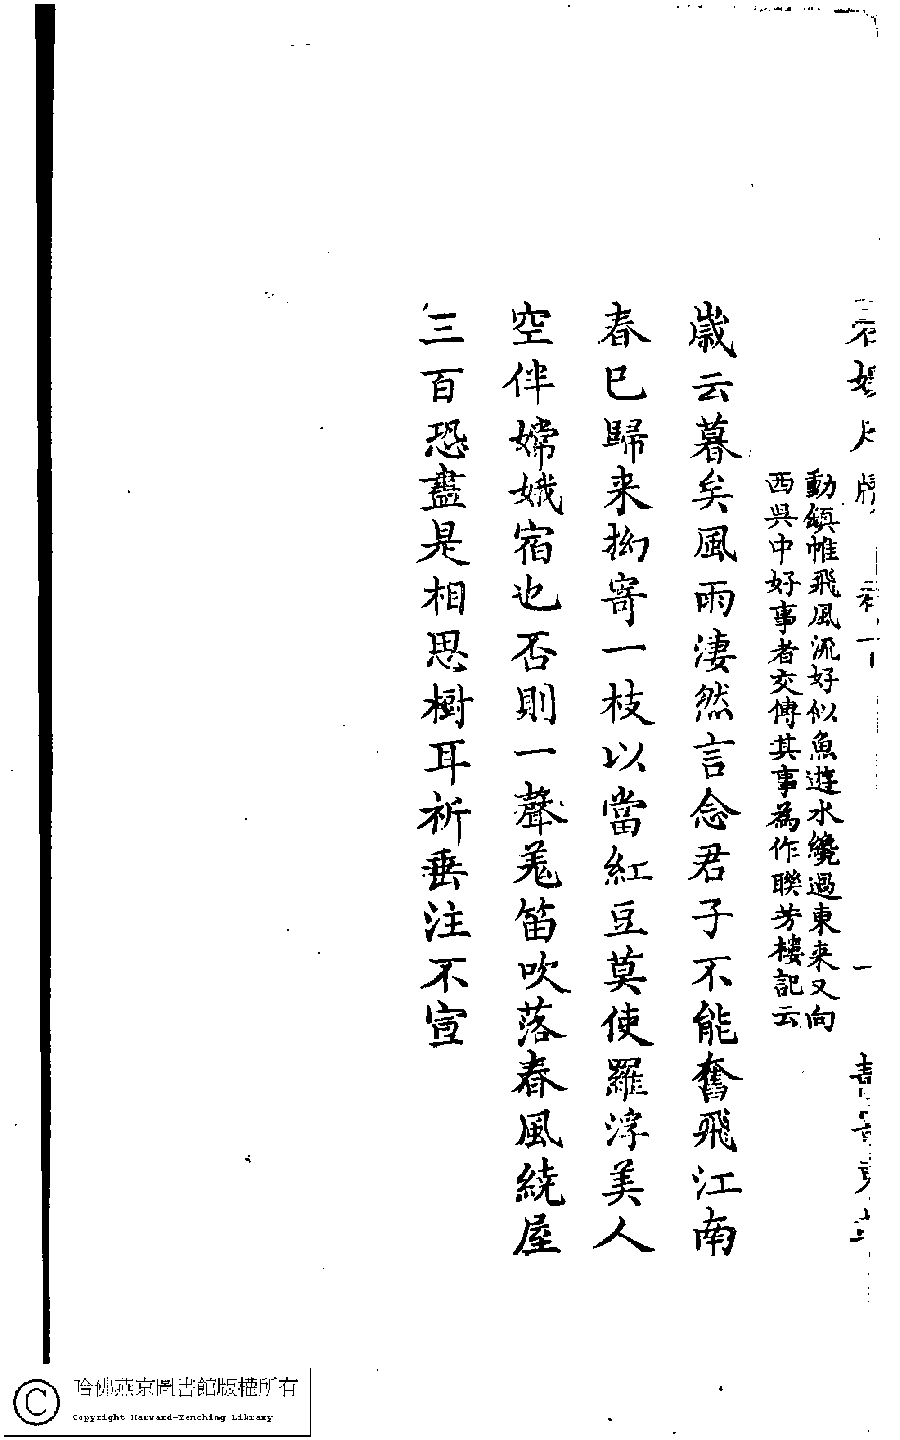 動鎮帷飛風流好似魚遊水纔過東来又向
西吳中好事者交傳其事為作聯芳樓記云
歲云暮矣風雨淒然言念君子不能奮飛江南
春已歸来拗寄一枝以當紅豆莫使羅浮美人
空伴嫦娥宿也否則一聲羌笛吹落春風繞屋
三百恐盡是相思樹耳祈垂注不宣
哈佛燕京圖書館版權所有
Copyright Harvard-Yenching Library